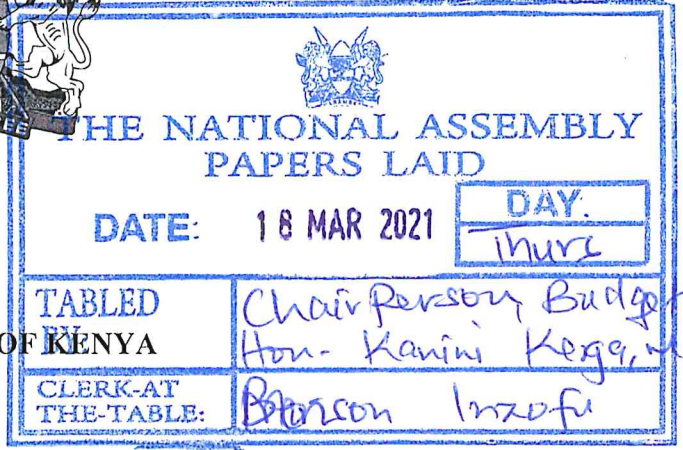 THE NATIONAL ASSEMBLY
PAPERS LAID
DATE: 18 MAR 2021
DAY.
Thurs
TABLED
BY
Chairperson, Budget
Hon. Kanini Kega,
OF KENYA
CLERK-AT
THE-TABLE:
Inzofu